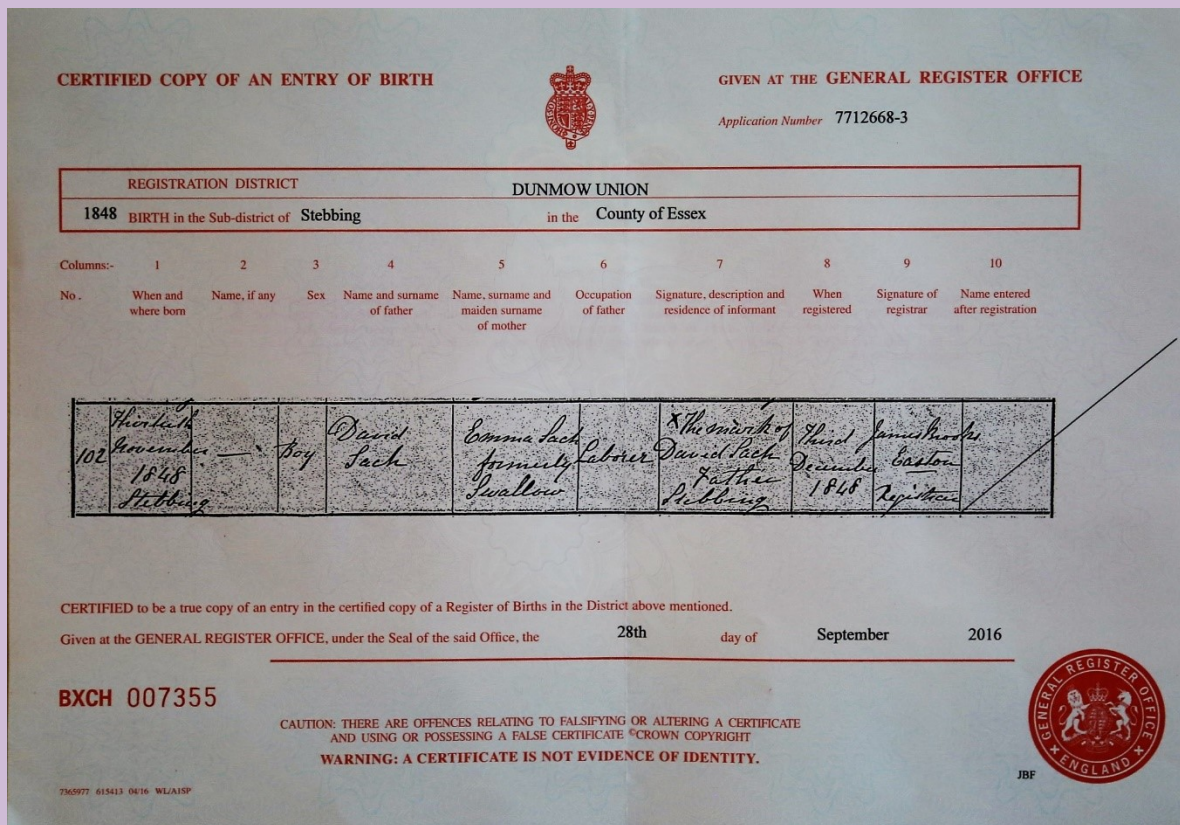 CERTIFIED COPY OF AN ENTRY OF BIRTH
GIVEN AT THE GENERAL REGISTER OFFICE
Application Number 7712668-3
REGISTRATION DISTRICT DUNMOW UNION
1848 BIRTH in the Sub-district of Stebbing in the County of Essex
Columns:- 1 2 3 4 5 6 7 8 9 10
No. When and where born
Name, if any
Sex
Name and surname of father
Name, surname and maiden surname of mother
Occupation of father
Signature, description and residence of informant
When registered
Signature of registrar
Name entered after registration
102
Thirtieth
November
1848
Stebbing
—
Boy
David
Sack
Emma Sack
formerly
Swallow
Laborer
X The mark of
David Sack
Father
Stebbing
Third
December
1848
James Brooks
Easton
Registrar
CERTIFIED to be a true copy of an entry in the certified copy of a Register of Births in the District above mentioned.
Given at the GENERAL REGISTER OFFICE, under the Seal of the said Office, the 28th day of September 2016
BXCH 007355
CAUTION: THERE ARE OFFENCES RELATING TO FALSIFYING OR ALTERING A CERTIFICATE
AND USING OR POSSESSING A FALSE CERTIFICATE ©CROWN COPYRIGHT
WARNING: A CERTIFICATE IS NOT EVIDENCE OF IDENTITY.
GENERAL REGISTER OFFICE
ENGLAND
JBF
7365977 615413 04/16 WL/A1SP